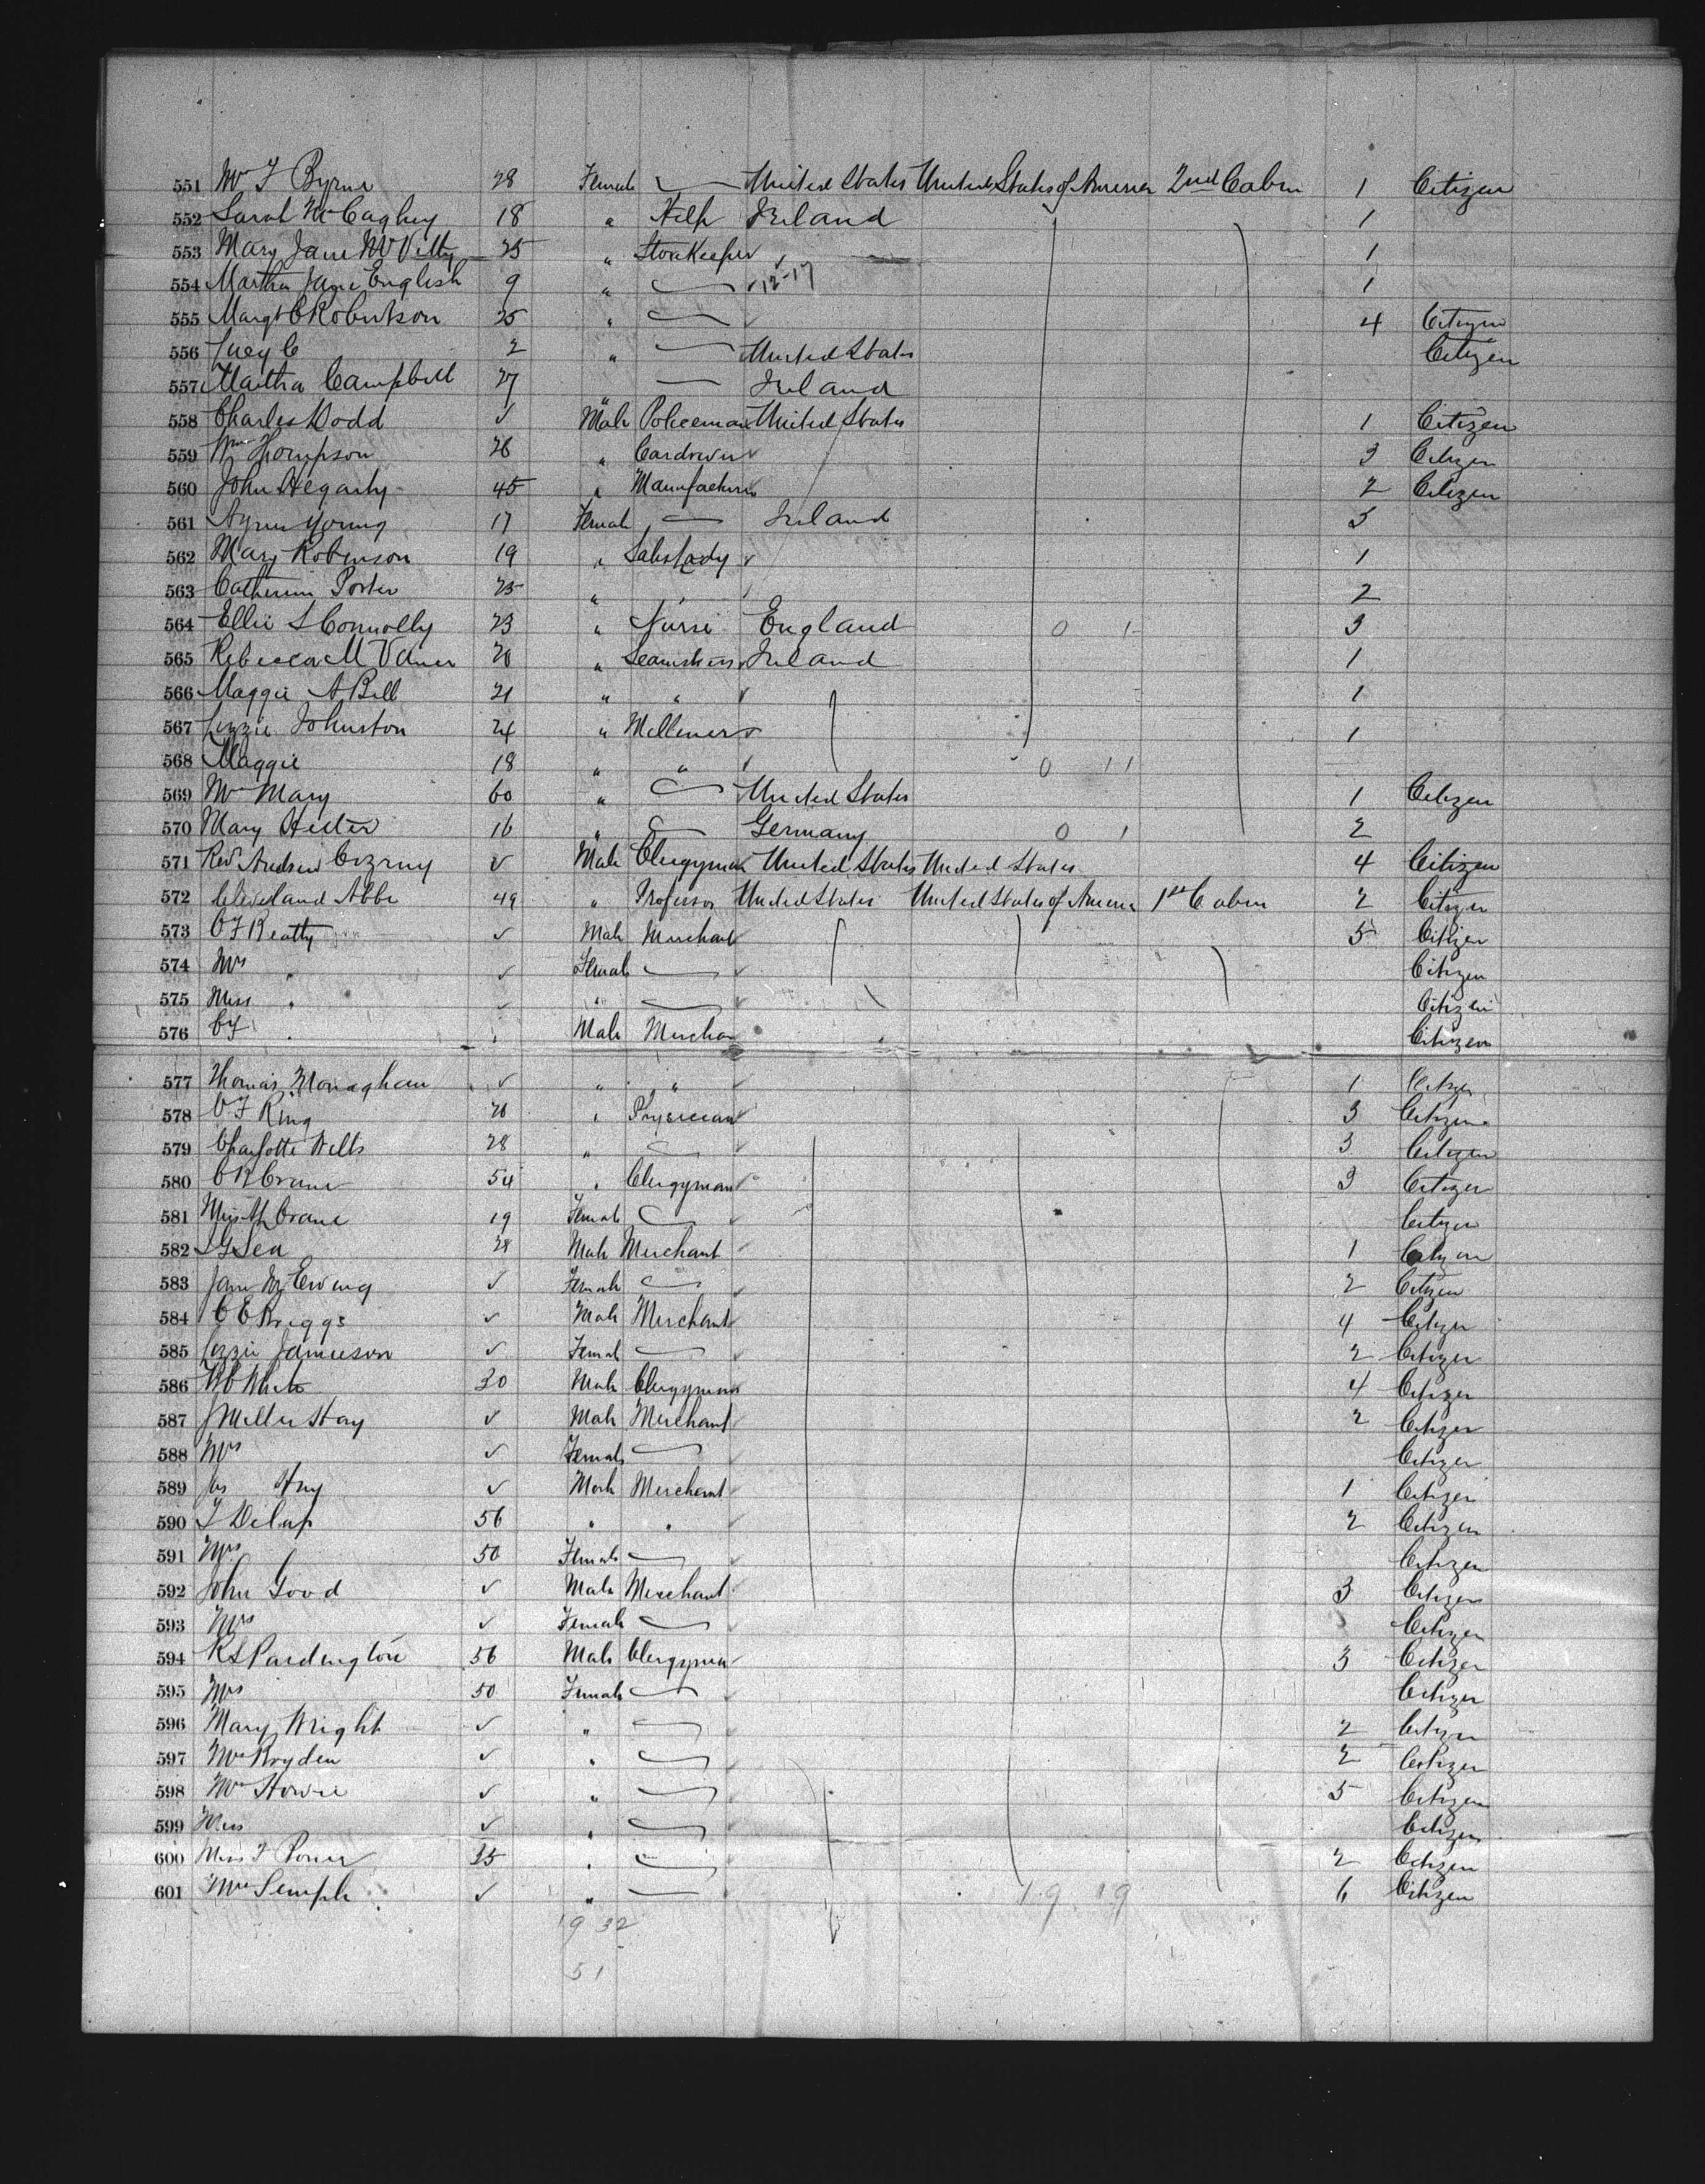 551 Mrs F Byrne 28 Female — United States United States of America 2nd Cabin 1 Citizen
552 Sarah McCaghey 18 " Help Ireland 1
553 Mary Jane McVitty 25 " Storekeeper ✓ 1
554 Martha Jane English 9 " — ✓ 12-17 1
555 Margt C Robertson 25 " — ✓ 4 Citizen
556 Lucy C 2 " — United States Citizen
557 Martha Campbell 27 " — Ireland
558 Charles Dodd ✓ Male Policeman United States 1 Citizen
559 Wm Thompson 28 " ✓ 3 Citizen
560 John Hegarty 45 " Manufacturer ✓ 2 Citizen
561 Agnes Young 17 Female — Ireland 3
562 Mary Robinson 19 " Saleslady ✓ 1
563 Catherine Porter 25 " " 2
564 Ellie S Connolly 23 " Nurse England 0 1 3
565 Rebecca M 20 " Seamstress Ireland 1
566 Maggie A Bell 21 " " ✓ 1
567 Lizzie Johnston 24 " Milliner ✓ 1
568 Maggie 18 " " ✓ 0 11
569 Mrs Mary 60 " — United States 1 Citizen
570 Mary 16 " — Germany 0 1 2
571 Revd Andrew Cizrny ✓ Male Clergyman United States United States 4 Citizen
572 Cleveland Abbe 49 " Professor United States United States of America 1st Cabin 2 Citizen
573 C F Beatty ✓ Male Merchant ✓ 5 Citizen
574 Mrs " ✓ Female — ✓ Citizen
575 Miss " ✓ " — ✓ Citizen
576 C F " Male Merchant Citizen
577 Thomas Monaghan ✓ " " ✓ 1 Citizen
578 C F King 28 " Physician ✓ 3 Citizen
579 Charlotte Wells 28 " — ✓ 3 Citizen
580 C R Crane 54 " Clergyman ✓ 3 Citizen
581 Miss M Crane 19 Female — ✓ Citizen
582 S G Sea 28 Male Merchant ✓ 1 Citizen
583 Jane McEwing ✓ Female — ✓ 2 Citizen
584 C E Briggs ✓ Male Merchant ✓ 4 Citizen
585 Lizzie Jamieson ✓ Female — ✓ 2 Citizen
586 W C White 30 Male Clergyman ✓ 4 Citizen
587 J Miller Hay ✓ Male Merchant ✓ 2 Citizen
588 Mrs ✓ Female — ✓ Citizen
589 Jas Hay ✓ Male Merchant ✓ 1 Citizen
590 T Delap 56 " " ✓ 2 Citizen
591 Mrs 50 Female — ✓ Citizen
592 John Good ✓ Male Merchant ✓ 3 Citizen
593 Mrs ✓ Female — ✓ Citizen
594 R S Pardington 56 Male Clergyman ✓ 3 Citizen
595 Mrs 50 Female — ✓ Citizen
596 Mary Wright ✓ " — ✓ 2 Citizen
597 Mrs Bryden ✓ " — ✓ 2 Citizen
598 Mrs Howie ✓ " — ✓ 5 Citizen
599 Miss ✓ " — ✓ Citizen
600 Miss F Power 35 " — ✓ 2 Citizen
601 Mrs Semple ✓ " — 19 19 6 Citizen
19 32
51